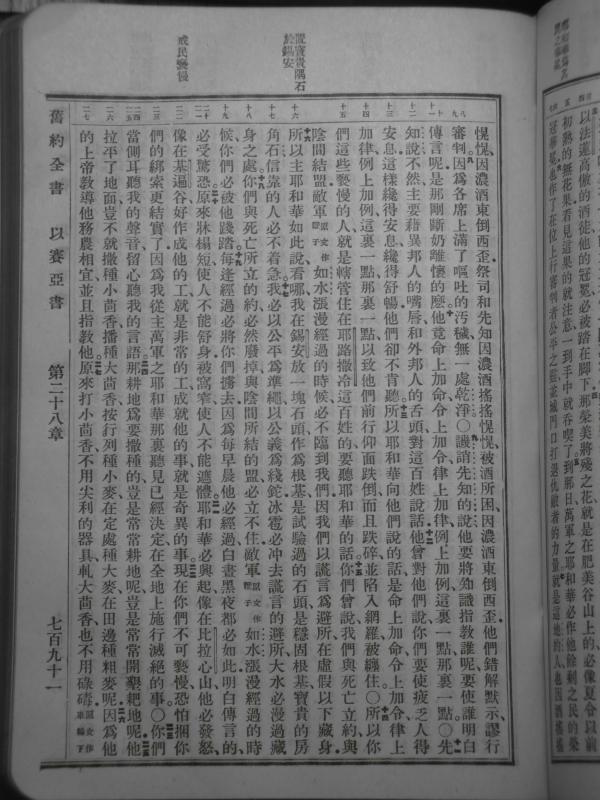 以法蓮高傲的酒徒、他的冠冕必被踏在腳下那榮美將殘之花就是在肥美谷山上的必像夏令以前
初熟的無花果看見這果的就注意一到手中就吞喫了到那日萬軍之耶和華必作他餘剩之民的榮
冠華冕也作了在位上行審判者公平之靈並城門口打退仇敵者的力量就是這地的人也因酒搖搖
置寶貴隅石於錫安
戒民褻慢
愰愰、因濃酒東倒西歪、祭司和先知因濃酒搖搖愰愰、被酒所困、因濃酒東倒西歪、他們錯解默示、謬行
審判、因爲各席上滿了嘔吐的汚穢、無一處乾淨〇譏誚先知的說、他要將知識指敎誰呢、要使誰明白
傳言呢、是那剛斷奶離懷的麽、他竟命上加命、令上加令、律上加律、例上加例、這裏一點、那裏一點〇先
知說、不然、主要藉異邦人的嘴唇、和外邦人的舌頭、對這百姓說話、他曾對他們說、你們要使疲乏人得
安息、這樣纔得安息、纔得舒暢、他們卻不肯聽、所以耶和華向他們說的話、是命上加命、令上加令、律上
加律、例上加例、這裏一點、那裏一點、以致他們前行仰面跌倒、而且跌碎、並陷入網羅被纏住〇所以你
們這些褻慢的人、就是轄管住在耶路撒冷這百姓的、要聽耶和華的話、你們曾說、我們與死亡立約、與
陰間結盟、敵軍原文作鞭子如水漲漫經過的時候、必不臨到我們、因我們以謊言爲避所、在虛假以下藏身、
所以主耶和華如此說、看哪、我在錫安放一塊石頭作爲根基、是試驗過的石頭、是穩固根基、寶貴的房
角石、信靠的人必不着急、我必以公平爲準繩、以公義爲綫鉈、冰雹必冲去謊言的避所、大水必漫過藏
身之處、你們與死亡所立的約、必然廢掉、與陰間所結的盟、必立不住、敵軍原文作鞭子如水漲漫經過的時
候、你們必被他踐踏、每逢經過必將你們擄去、因爲每早晨他必經過、白晝黑夜都必如此、明白傳言的、
必受驚恐、原來牀榻短、使人不能舒身、被窩窄、使人不能遮體、耶和華必興起、像在比拉心山、他必發怒、
像在基遍谷、好作成他的工、就是非常的工、成就他的事、就是奇異的事、現在你們不可褻慢、恐怕捆你
們的綁索更結實了、因爲我從主萬軍之耶和華那裏聽見已經決定、在全地上施行滅絕的事〇你們
當側耳聽我的聲音、留心聽我的言語、那耕地爲要撒種的、豈是常常耕地呢、豈是常常開墾耙地呢、他
拉平了地面、豈不就撒種小茴香、播種大茴香、按行列種小麥、在定處種大麥、在田邊種粗麥呢、因爲他
的上帝敎導他務農相宜、並且指敎他、原來打小茴香、不用尖利的器具、軋大茴香、也不用碌碡原文作車輪下
舊約全書　以賽亞書　第二十八章　七百九十一